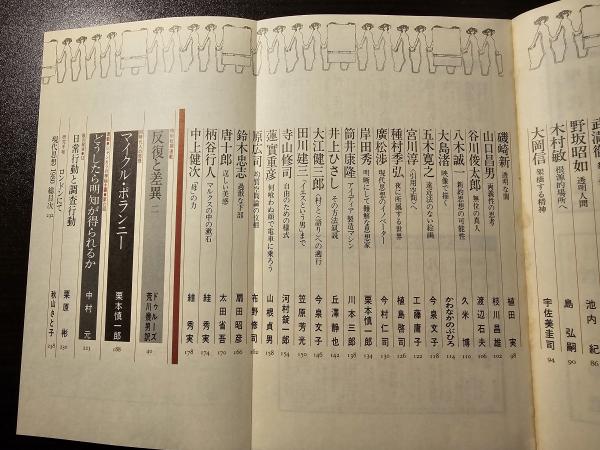 武満徹
池内 紀 86
野坂昭如 透明人間
島 弘嗣 90
木村敏 根源的場所へ
宇佐美圭司 94
大岡信 架橋する精神
磯崎新 透明な闇
植田 実 98
山口昌男 両義性の思考
枝川昌雄 102
谷川俊太郎 無役の真人
渡辺石夫 106
八木誠一 新約思想の可能性
久米 博 110
大島渚 映像で描く
かわなかのぶひろ 114
五木寛之 遠近法のない絵画
今泉文子 118
宮川淳 〈引用〉空間へ
工藤庸子 122
種村季弘 夜に所属する世界
植島啓司 126
廣松渉 現代思想のイノベーター
今村仁司 130
岸田秀 明晰にして難解な思想家
栗本慎一郎 134
筒井康隆 アイディア製造マシン
川本三郎 138
井上ひさし その方法叙説
丘澤静也 142
大江健三郎 〈村=ことば=語り〉への遡行
今泉文子 146
田川建三 〈イエスという男〉まで
笠原芳光 150
寺山修司 自由のための様式
河村錠一郎 154
蓮實重彦 何喰わぬ顔で電車に乗ろう
山根貞男 158
原広司
布野修司 162
鈴木忠志 過激な下部
扇田昭彦 166
唐十郎 逞しい美感
太田省吾 170
柄谷行人 マルクスの中の漱石
絓 秀実 174
中上健次 「母」の力
絓 秀実 178
反復と差異 二
ドゥルーズ
荒川幾男訳 40
マイクル・ポランニー
栗本慎一郎 188
どうしたら明知が得られるか
中村 元 223
日常行動と調査行動
栗原 彬 230
ロンドンにて
秋山さと子 238
現代思想1980総目次 232